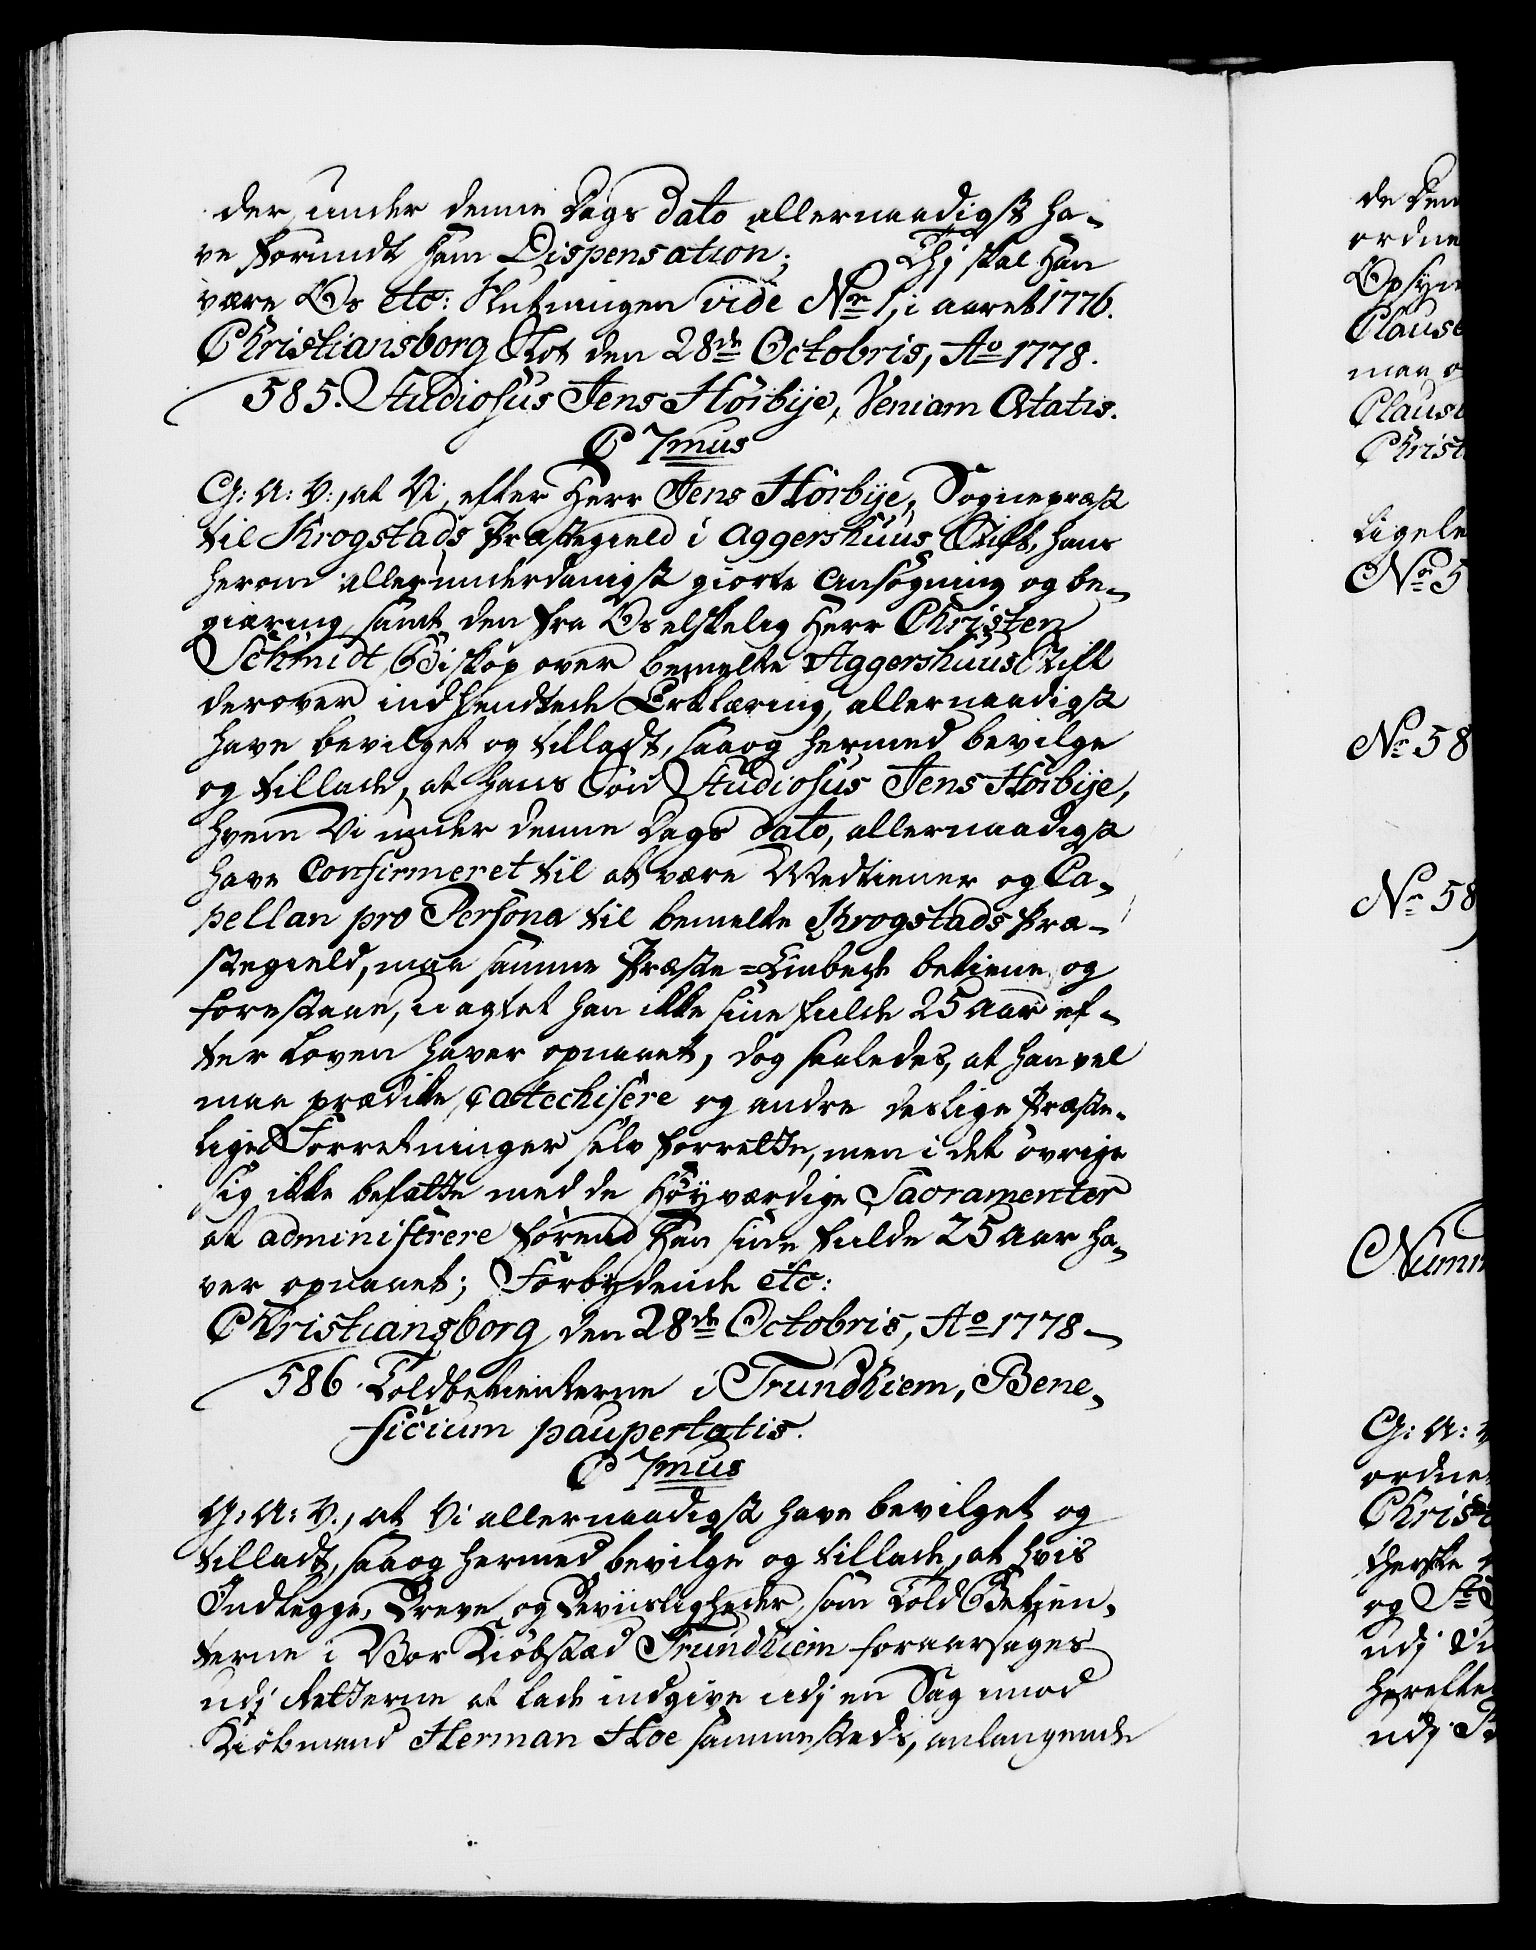 der, under denne Dags Dato allernaadigst ha-
ve forundt ham Dispensation; Thj skal Han
være Os etc: Slutningen vide No 1, i aaret 1776.
Christiansborg Slot den 28de Octobris, Ao 1778.
585. Studiosus Jens Hörbye, Veniam Ætatis.
C 7mus
G: A: V:, at Vi, efter Herr Jens Hörbye, Sognepræst
til Krogstads Præstegield i Aggershuus Stift, hans
herom allerunderdanigst giorte Ansøgning og be-
giæring, samt den fra Os elskelig Herr Christen
Schmidt, Biskop over bemelte Aggershuus Stift
derover indhendtede Erklæring, allernaadigst
have bevilget og tilladt, saa og hermed bevilge
og tillade, at hans Søn Studiosus Jens Hörbye,
hvem Vi under denne Dags Dato, allernaadigst
have Confirmeret til at være Medtiener og Ca-
pellan pro Persona til bemelte Krogstads Præ-
stegield, maa samme Præste-Embede betiene og
forestaae, uagtet han ikke sine fulde 25 Aar ef-
ter Loven haver opnaaet, dog saaledes, at han vel
maa prædike, catechisere og andre deslige Præste-
lige Forretninger selv forrette, men i det øvrige
sig ikke befatte med de Høyværdige Sacramenter
at administrere førend Han sine fulde 25 Aar ha-
ver opnaaet; Forbydende etc:
Christiansborg den 28de Octobris, Ao 1778.
586. Toldbetienterne i Trundhiem, Bene-
ficium paupertatis.
C 7mus
G: A: V., at Vi allernaadigst have bevilget og
tilladt, saa og hermed bevilge og tillade, at hvis
Indlegge, Breve og Beviisligheder, som Told Betien-
terne i Vor Kiøbstæd Trundhiem foraarsages
udj Retterne at lade indgive udj en Sag imod
Kiøbmand Herman Hoe sammesteds, anlangende
de den
ordne
Claus
maa
Christ
ligele
No 5
No 58
No 58
G: A: V
ordne
Christ
og St
udj
herefter
udj